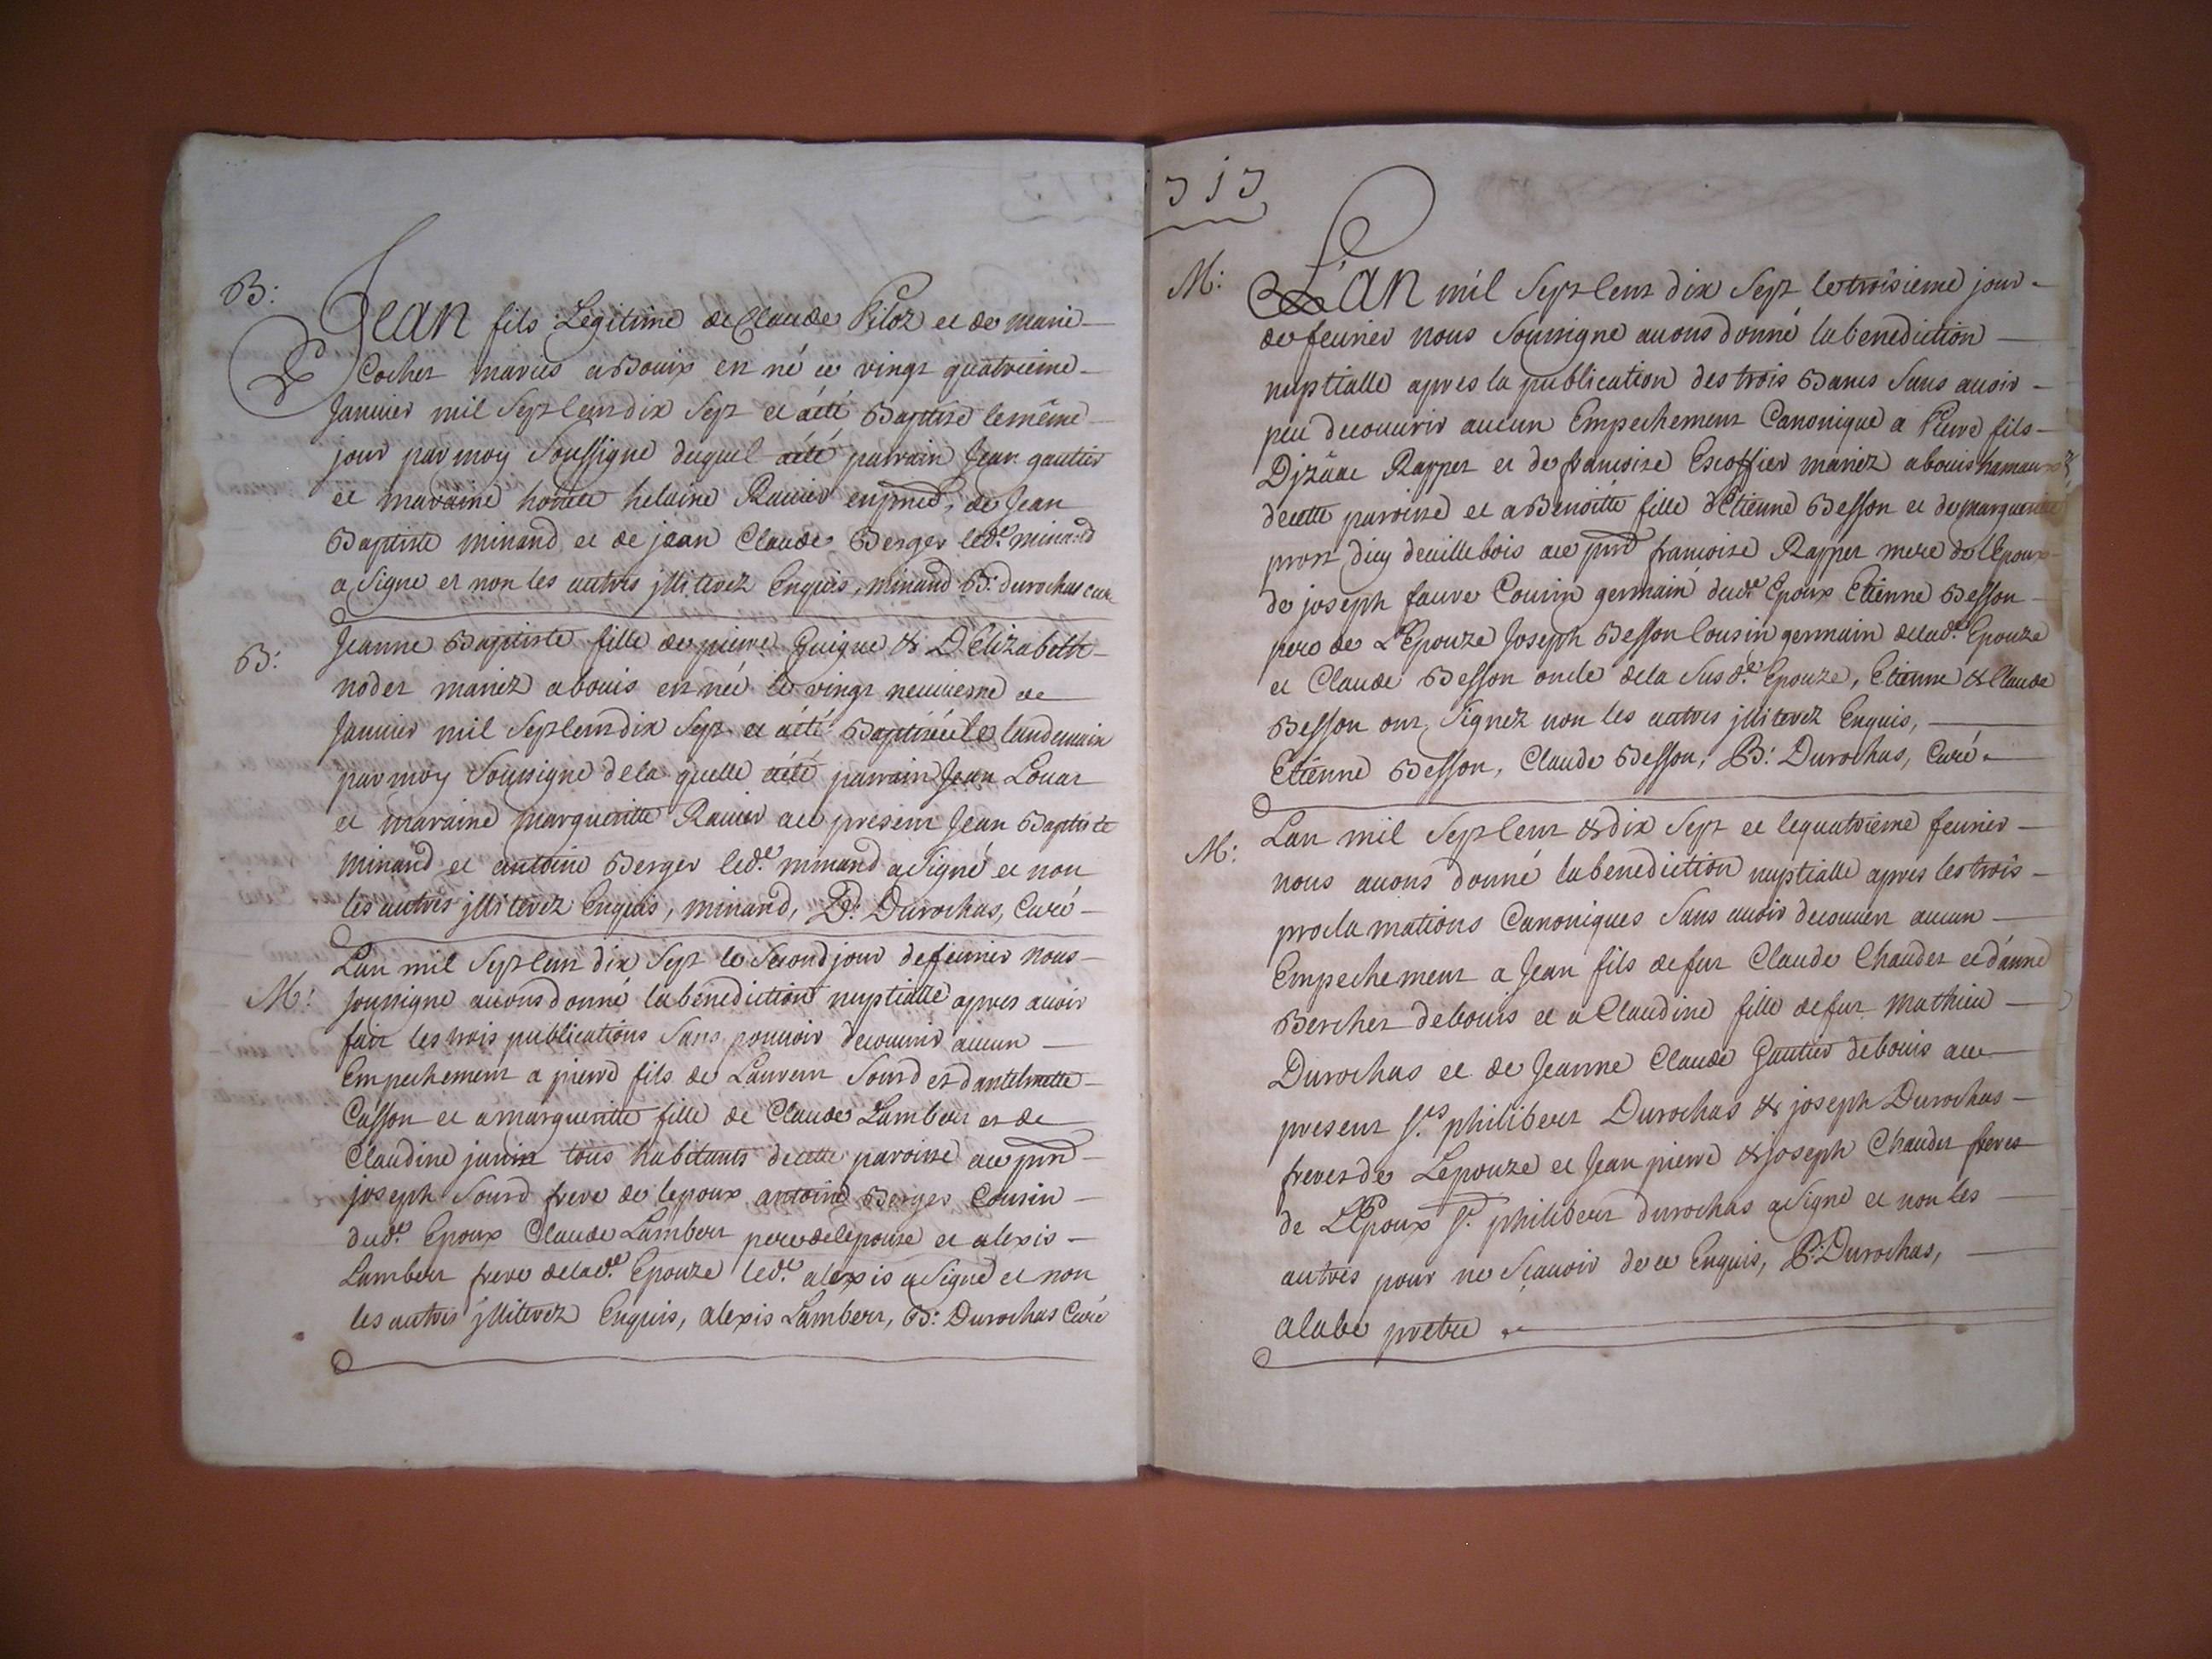 B:
Jean fils Légitime de Claude Piloz et de marie
Cochet mariés a Bouis est né ce vingt quatrieme
Januier mil Sept Cent dix Sept et aété Baptisé le même
jour par moy Soussigné duquel aété parrain Jean gautier
et maraine honete helaine Rauier enpnce. de Jean
Baptiste minand et de jean Claude Berger led.t minand
a signé et non les autres jllitérez Enquis, minand B: durochas curé
B:
Jeanne Baptiste fille de pierre Guigue & D'Elizabeth
nodet mariéz abouis est néé le vingt neuuiesme de
Januier mil Sept Cent dix Sept et aété Baptiséé le landemain
par moy Soussigné de la quelle aété parrain Jean Louat
et maraine margueritte Rauier au présent Jean Baptiste
minand et antoine Berger led.t minand a Signé et non
les autres jllitérez Enquis, minand, B: Durochas, Curé
M:
Lan mil Sept Cent dix Sept le Second jour de feurier nous
soussigné auons donné la bénediction nuptialle apres auoir
fait les trois publications Sans pouuoir decouurir aucun
Empechement a pierre fils de Laurent Sourd et dantelmette
Casson et a margueritte fille de Claude Lambert et de
Claudine janin tous habitants de cette paroisse au pnt
joseph Sourd frere de lepoux antoine Berger Cousin
dud.t Epoux Claude Lambert pere de lepouse et alexis
Lambert frere de lad.te Epouze led.t alexis a Signé et non
les autres jllitérez Enquis, alexis Lambert, B: Durochas Curé
313
M:
L'an mil Sept Cent dix Sept le troisieme jour
de feurier nous Soussigné auons donné la benediction
nuptialle apres la publication des trois Bans Sans auoir
peu decouurir aucun Empechement Canonique a Pierre fils
Djzâac Rappet et de francoise Escoffier mariez abouis hamaux
de cette paroisse et a Benoitte fille d'Etienne Besson et de margueritte
prost dicy deuillebois au pnt francoise Rappet mere de lEpoux
de joseph fauve Cousin germain dud.t Epoux Etienne Besson
pere de L'Epouze Joseph Besson Cousin germain de lad.te Epouze
et Claude Besson oncle de la Sus d.te Epouze, Etienne & Claude
Besson ont Signez non les autres jllitérez Enquis,
Etienne Besson, Claude Besson, B: Durochas, Curé
M:
Lan mil Sept Cent & dix Sept et le quatrieme feurier
nous auons donné la benediction nuptialle apres les trois
procla mations Canoniques Sans auoir decouuert aucun
Empechement a Jean fils de fut Claude Chaudet et d'anne
Berchet de bouis et a Claudine fille de fut mathieu
Durochas et de Jeanne Claude Gautier de bouis au
present S.rs philibert Durochas & joseph Durochas
freres de Lepouze et Jean pierre & joseph Chaudet freres
de L'Epoux S.r philibert durochas a Signé et non les
autres pour ne Sçauoir de ce Enquis, P: Durochas,
alabe pretre